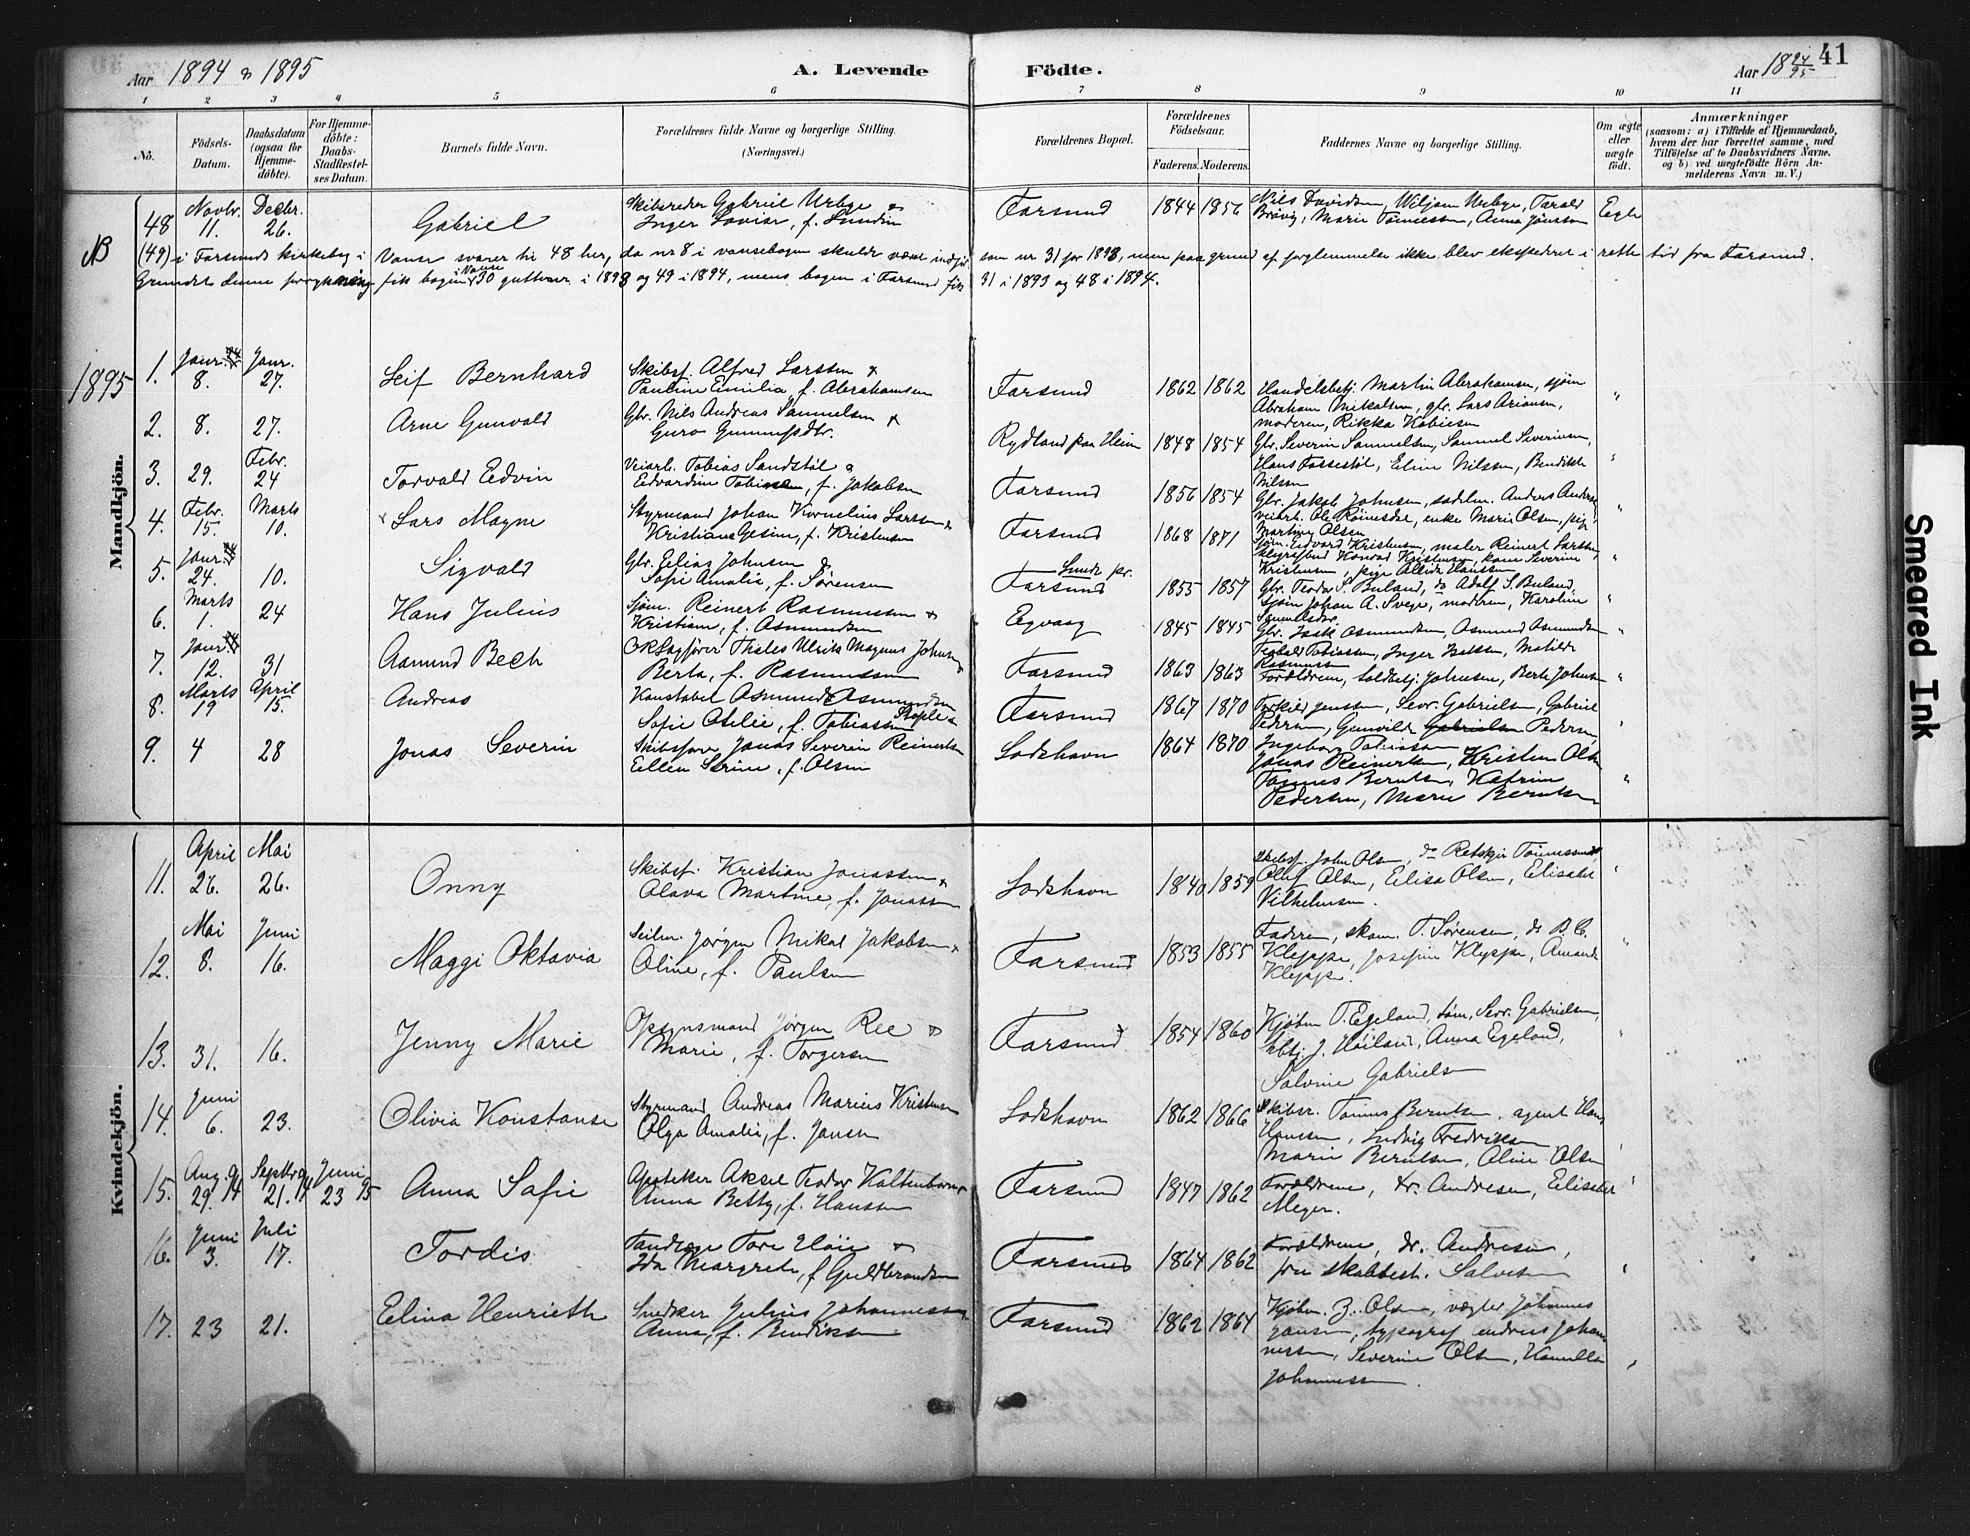 Aar 1894 & 1895
A. Levende
Födte.
Aar 18 94/95
41
1 2 3 4 5 6 7 8 9 10 11
No.
Födsels-
Datum.
Daabsdatum
(ogsaa for
Hjemme-
döbte).
For Hjemme-
döbte:
Daabs-
Stadfæstel-
ses Datum.
Barnets fulde Navn.
Forældrenes fulde Navne og borgerlige Stilling.
(Næringsvei.)
Forældrenes Bopæl.
Forældrenes
Födselsaar.
Faderens. Moderens.
Faddernes Navne og borgerlige Stilling.
Om ægte
eller
uægte
födt.
Anmærkninger
(saasom: a) i Tilfælde af Hjemmedaab,
hvem der har forrettet samme, med
Tilföielse af to Daabsvidners Navne,
og b) ved uægtefödte Börn An-
melderens Navn m. V.)
48 Novbr. 11. Decbr. 26. Gabriel
Skibsreder Gabriel Urbye &
Inger Lovise, f. Lundin
Farsund 1844 1856
Nils Davidsen, Wiljam Urbye, Tarald
Brøvig, Marie Tönnessen, Anna Jönsson
Egte
NB (49) i Farsunds kirkebog i Vanse svarer til 48 her, da nr 8 i vansebogen skulde være indført som nr 31 for 1893, men paa grund af forglemmelse ikke blev ekspederet i rette tid fra Farsund.
Grundet denne forglemmelse fik bogen i Vanse 30 guttenr i 1893 og 49 i 1894, mens bogen i Farsund fik 31 i 1893 og 48 i 1894.
Mandkjön.
1895
1. Janr. 8. Janr. 27. Leif Bernhard
Skibsf. Alfred Larssen &
Pauline Emilia, f. Abrahamsen
Farsund 1862 1862
Handelsbtj. Martin Abrahamsen, sjöm
Abraham Mikalsen, glr. Lars Ariansen,
moderen, Rikka Kobiesen "
2. 8. 27. Arne Gunvald
Gbr. Nils Andreas Samuelsen &
Guro Gunnufsdtr.
Rydland paa Heien 1848 1854
Gbr. Severin Samuelsen, Samuel Severinsen,
Hans Fossestöl, Eline Nilssen, Bendikte
Nilssen "
3. 29. Febr. 24 Torvald Edvin
Veiarb. Tobias Sandstöl &
Edvardine, f. Jakobsen
Farsund 1856 1854
Gbr. Jakob Johnsen, sadelm. Anders Anders
veiarb. Ole Röinesdal, enke Marie Olsen, pige
Martine Olsen "
4. Febr. 15. Marts 10. Lars Magne
Styrmand Johan Kornelius Larssen &
Kristiane Gesine, f. Kristensen
Farsund 1868 1871
Sjöm. Edvard Kristensen, maler Reinert Larssen,
Konrad Kristensen, kone Severine
Kristensen, pige Alvide Hanssen "
5. Janr. 24. 10. Sigvald
Gbr. Elias Johnsen &
Sofie Amalie, f. Sørensen
Lunde pr.
Farsund 1855 1857
Gbr. Teodor S. Buland, do Adolf S. Buland,
Sjöm Johan A. Svege, moderen, Karoline
Samuelsdtr. "
6. Marts 1. 24 Hans Julius
Sjöm. Reinert Rasmussen &
Kristiane, f. Asmundsen
Egvaag 1845 1845
Gbr. Isak Asmundsen, Asmund Asmundsen
Teobald Tobiassen, Inger Isaksen, Matilde
Rasmussen "
7. Janr. 12. 31 Aamund Bech
ORSagfører Thales Ulrik Magnus Johnsen &
Berta, f. Rasmussen
Farsund 1863 1863
Forældrene, toldbtj. Johnsen, Berte Johnsen "
8. Marts 19 April 15. Andreas
Konstabel Asmund Asmundsen
Sofie Otelie, f. Tobiassen
Farsund 1867 1870
Torkild Janssen, Sevr. Gabrielsen, Gabriel
Pedersen, Gunvilde Gabrielsen Pedersen
Ingebor Tobiassen "
9. 4 28 Jonas Severin
Skibsfører Jonas Severin Reinertsen
Ellen Serine, f. Olsen
Lodshavn 1864 1870
Jonas Reinertsen, Kristen Olsen
Tönnes Berntsen, Katrine
Pedersen, Marie Berntsen "
Kvindekjön.
11. April 26. Mai 26. Onny
Skibsf. Kristian Jonassen &
Olava Martine, f. Jonassen
Lodshavn 1840 1859
Skibsf. John Olsen, do Retskjer Tönnessen
Oluf Olsen, Elisa Olsen, Elisabet
Vilhelmsen. "
12. Mai 8. Juni 16. Maggi Oktavia
Seilm. Jörgen Mikal Jakobsen &
Oline, f. Paulsen
Farsund 1853 1855
Faderen, skom. T. Sørensen, do B. C.
Kleppe, Josefine Kleppe, Amanda
Kleppe. "
13. 31. 16. Jenny Marie
Opsynsmand Jörgen Ree &
Marie, f. Torgersen
Farsund 1854 1860
Kjöbm T. Egeland, töm. Sevr. Gabrielsen,
hbtj. J. Höiland, Anna Egeland,
Salvine Gabrielsen "
14. Juni 6. 23. Olivia Konstanse
Styrmand Andreas Marius Kristensen
Olga Amalie, f. Jansen
Lodshavn 1862 1866
Skibsr. Tönnes Berntsen, agent Hans
Hansen, Ludvig Fredriksen
Marie Berntsen, Oline Olsen "
15. Aug. 94 29. Septbr 94 21. Juni 23 95 Anna Sofie
Apoteker Aksel Teodor Kaltenborn &
Anna Betty, f. Hanssen
Farsund 1847 1862
Forældrene, dr. Andresen, Elisabet
Meyer. "
16. Juni 3. Juli 17. Tordis
Tandlæge Tore Höie &
Ida Margrete, f Guldbrandsen
Farsund 1864 1862
Forældrene, dr. Andresen,
fru skolebest. Salvesen "
17. 23 21. Elina Henriette
Snedker Julius Johannessen &
Anna, f. Bendiksen
Farsund 1862 1864
Kjöbm. Z. Olsen, vægter Johannes
Jansen, typograf Andreas Johan-
nessen, Severine Olsen, Kamilla
Johannessen "
Smeared Ink